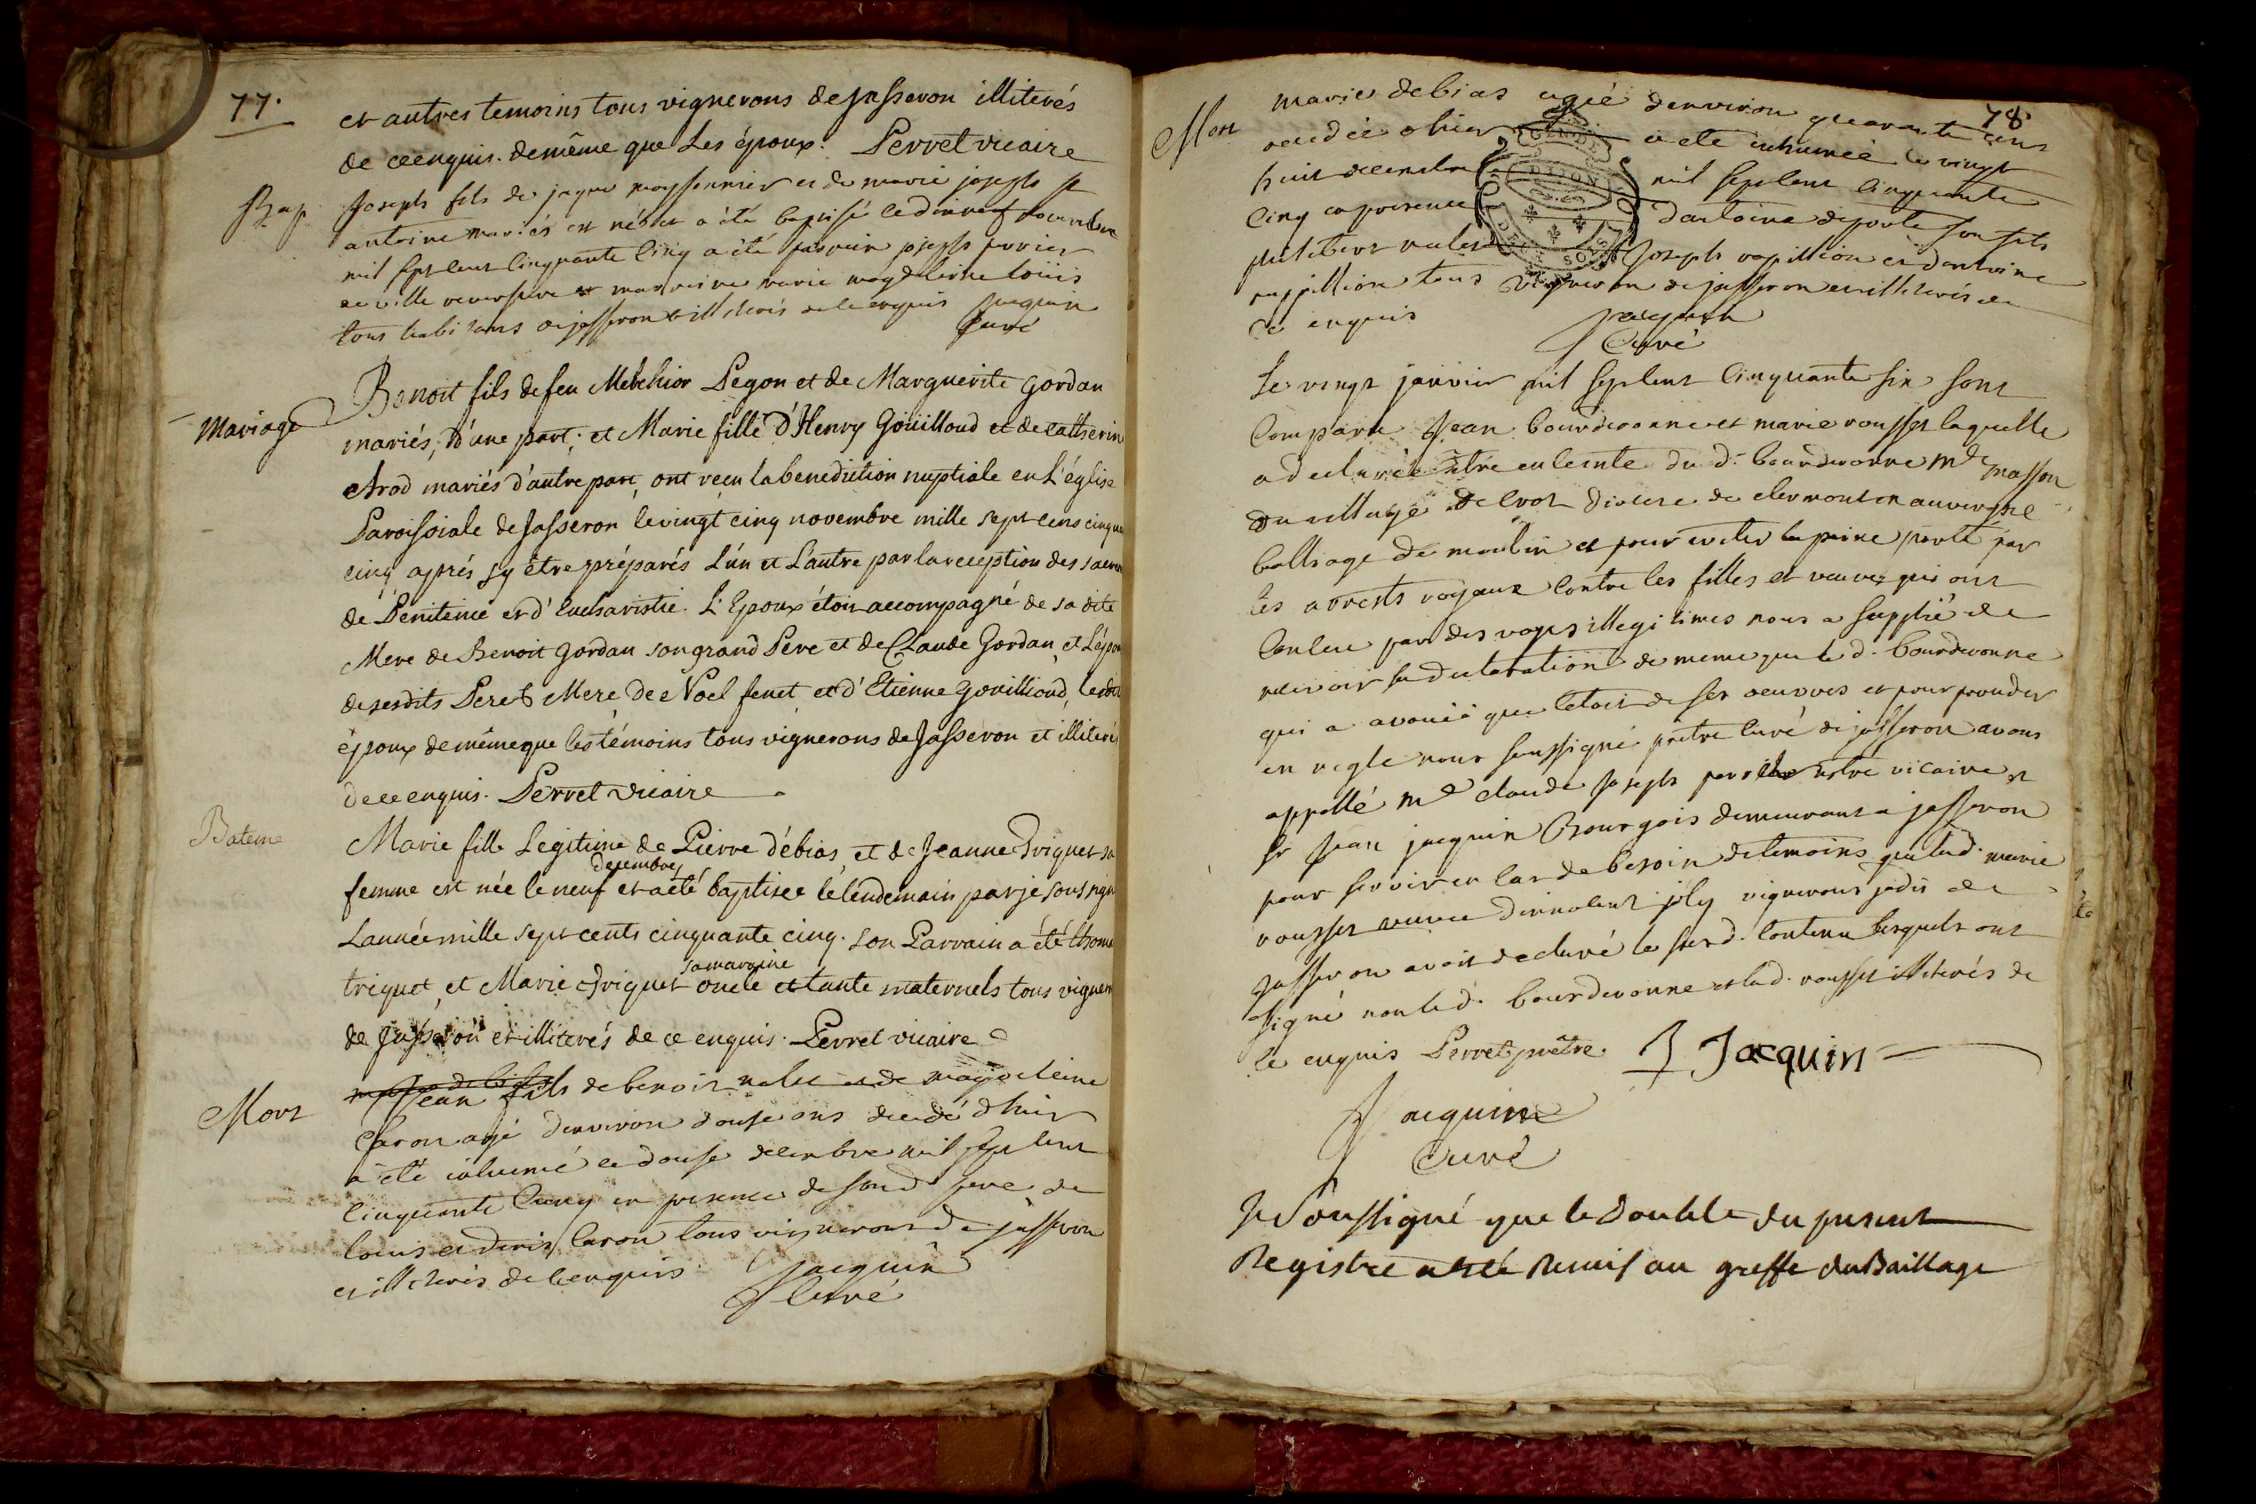 77.
et autres temoins tous vignerons de Jasseron illiterés
de ce enquis. de même que Les époux. Perret vicaire
Bap. Joseph fils de jaque moyssonnier et de marie joseph
antoine mariés est né et a été baptisé le novembre
mil sept cent cinquante cinq a été parrain joseph
et marraine marie magdeleine
tous habitans de jasseron illiterés de ce enquis Jacquin
curé
Mariage
Benoit fils de feu Melchior Pegon et de Marguerite Gordan
mariés, d'une part; et Marie fille d'Henry Goüilloud et de catherin
Arod mariés d'autre part, ont reçu la benediction nuptiale en L'église
Paroissiale de Jasseron le vingt cinq novembre mille sept cens cinqua
cinq aprés sy être préparés L'un et L'autre par la reception des sacrem
de Penitence et d'Eucharistie. L'Epoux étoit accompagné de sa dite
Mere de Benoit Gordan son grand Pere et de Claude Gordan, et L'épou
de sesdits Pere et Mere, de Noel fenet, et d'Etienne Gouilliond, lesdit
époux de même que les témoins tous vignerons de Jasseron et illiteré
de ce enquis. Perret vicaire
Bateme
Marie fille Legitime de Pierre débias et de Jeanne Triquet sa
decembre
femme est née le neuf et a été baptisee le lendemain par je soussign
L'année mille sept cents cinquante cinq. son Parrain a été thom
sa maraine
triquet, et Marie Triquet oncle et tante maternels tous vigner
de Jasseron et illiterés de ce enquis. Perret vicaire
Mort
Jean fils de benoit nalet et de magdeleine
Caron agé d'environ douse ans decedé d'hier
a été inhumé le douse decembre mil sept cent
cinquante cinq en presence de sond. pere de
louis et denis caron tous vignerons de jasseron
et illiterés de ce enquis Jacquin
curé
78.
Mort
marie debias agée d'environ quarante ans
decedée d'hier a été inhumée le vingt
huit decembre mil sept cent cinquante
cinq en presence d'antoine deporte son fils
Joseph rapillion et d'antoine
rappillion tous vigneron de jasseron et illiterés de
ce enquis Jacquin
Curé
DIJON
Le vingt janvier mil sept cent cinquante six sont
comparu Jean bourderonne et marie rousset laquelle
a declarée être enceinte du d. bourderonne md masson
du village de crot diocese de clermont en auvergne
balliage de moulin et pour eviter la peine porté par
les arrests royaux contre les filles et veuves qui ont
conceu par des voyes illegitimes nous a supplié de
recevoir sa declaration de meme que le d. bourderonne
qui a avoüé que c'etoit de ses oeuvres et pour proceder
en regle nous soussigné pretre curé de jasseron avons
appellé md claude joseph perret notre vicaire et
sr jean jacquin Bourgois demeurant a jasseron
pour servir en cas de besoin de temoins que lad. marie
rousset veuve d'innocent joly vigneront jadis de
jasseron avoit declaré le susd. contenu lesquels ont
signé non led. bourderonne et lad. rousset illiterés de
ce enquis Perret prêtre J Jacquin
Jacquin
Curé
Je soussigné que le double du present
Registre a été Remis au greffe du Baillage